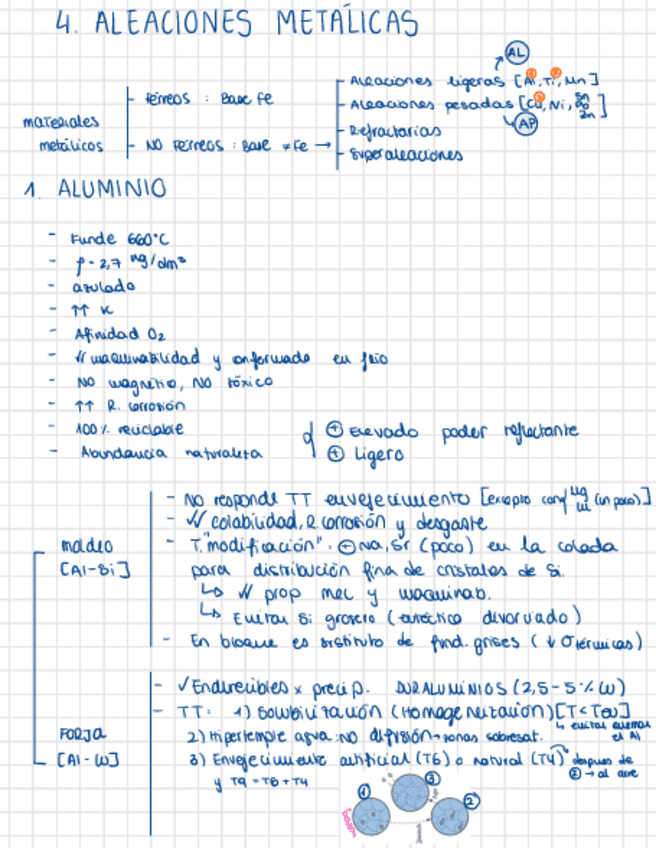 4. ALEACIONES METÁLICAS
materiales metálicos
Férreos : Base Fe
NO Férreos : Base ≠ Fe →
Aleaciones ligeras [Al, Ti, Mn]
AL
Aleaciones pesadas [Cu, Ni, Sn Zn]
AP
Refractarias
Superaleaciones
1. ALUMINIO
- Funde 660°C
- ρ = 2,7 Mg/dm³
- azulado
- ↑↑ K
- Afinidad O₂
- maquinabilidad y conformado en frío
- NO magnético, NO tóxico
- ↑↑ R. corrosión
- 100% reciclable
- Abundancia naturaleza
⊕ Elevado poder reflectante
⊕ Ligero
moldeo
[Al-Si]
- NO responde TT envejecimiento [excepto con Mg (un poco)]
- colabilidad, R corrosión y desgaste
- T."modificación". ⊕ Na, Sr (poco) en la colada
para distribución fina de cristales de Si.
↳ prop mec y maquinab.
↳ Evitar Si grosero (eutéctico divorciado)
- En bloque es sustituto de fund. grises (↓ σtérmicas)
FORJA
[Al-Cu]
- ✓Endurecibles x precip. DURALUMINIOS (2,5-5% Cu)
- TT: 1) Solubilización (Homogeneización) [T<Teu]
↳ evitar quemar el Al
2) Hipertemple agua: NO difusión → zonas sobresat.
3) Envejecimiento artificial (T6) o natural (T4)
después de ② → al aire
y T9 = T8 + T4
① ③ ②